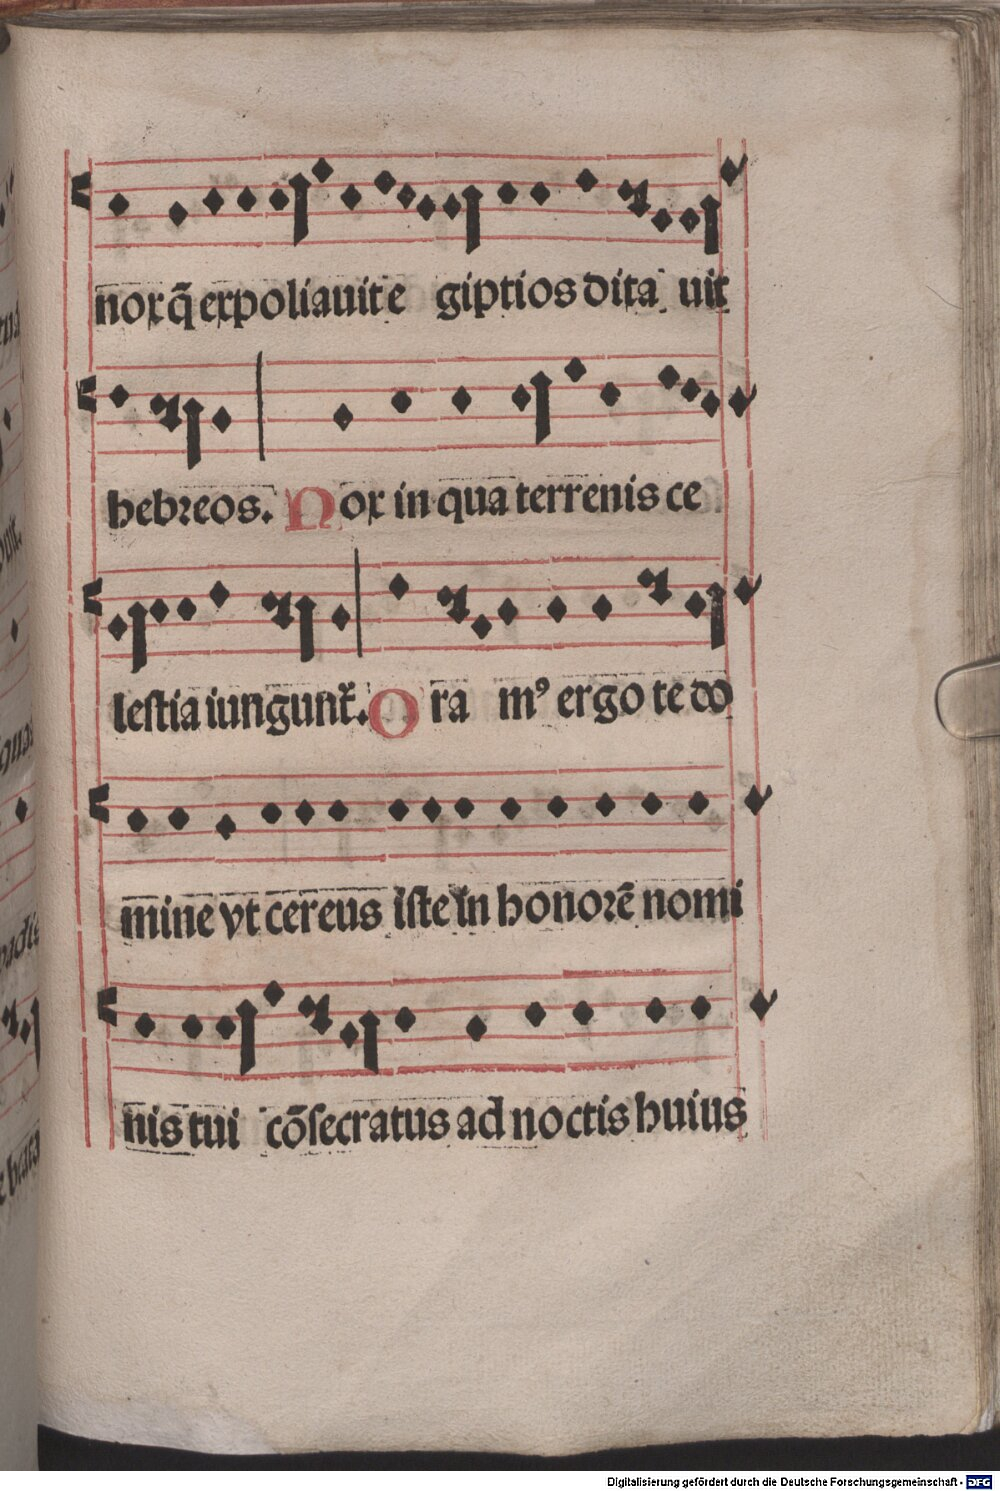 nox q̃ expoliauit e giptios dita uit
hebreos. Nox in qua terrenis ce
lestia iungunt᷑. O ra mꝰ ergo te do
mine vt cereus iste in honorē nomi
nis tui cōsecratus ad noctis huius
Digitalisierung gefördert durch die Deutsche Forschungsgemeinschaft - DFG